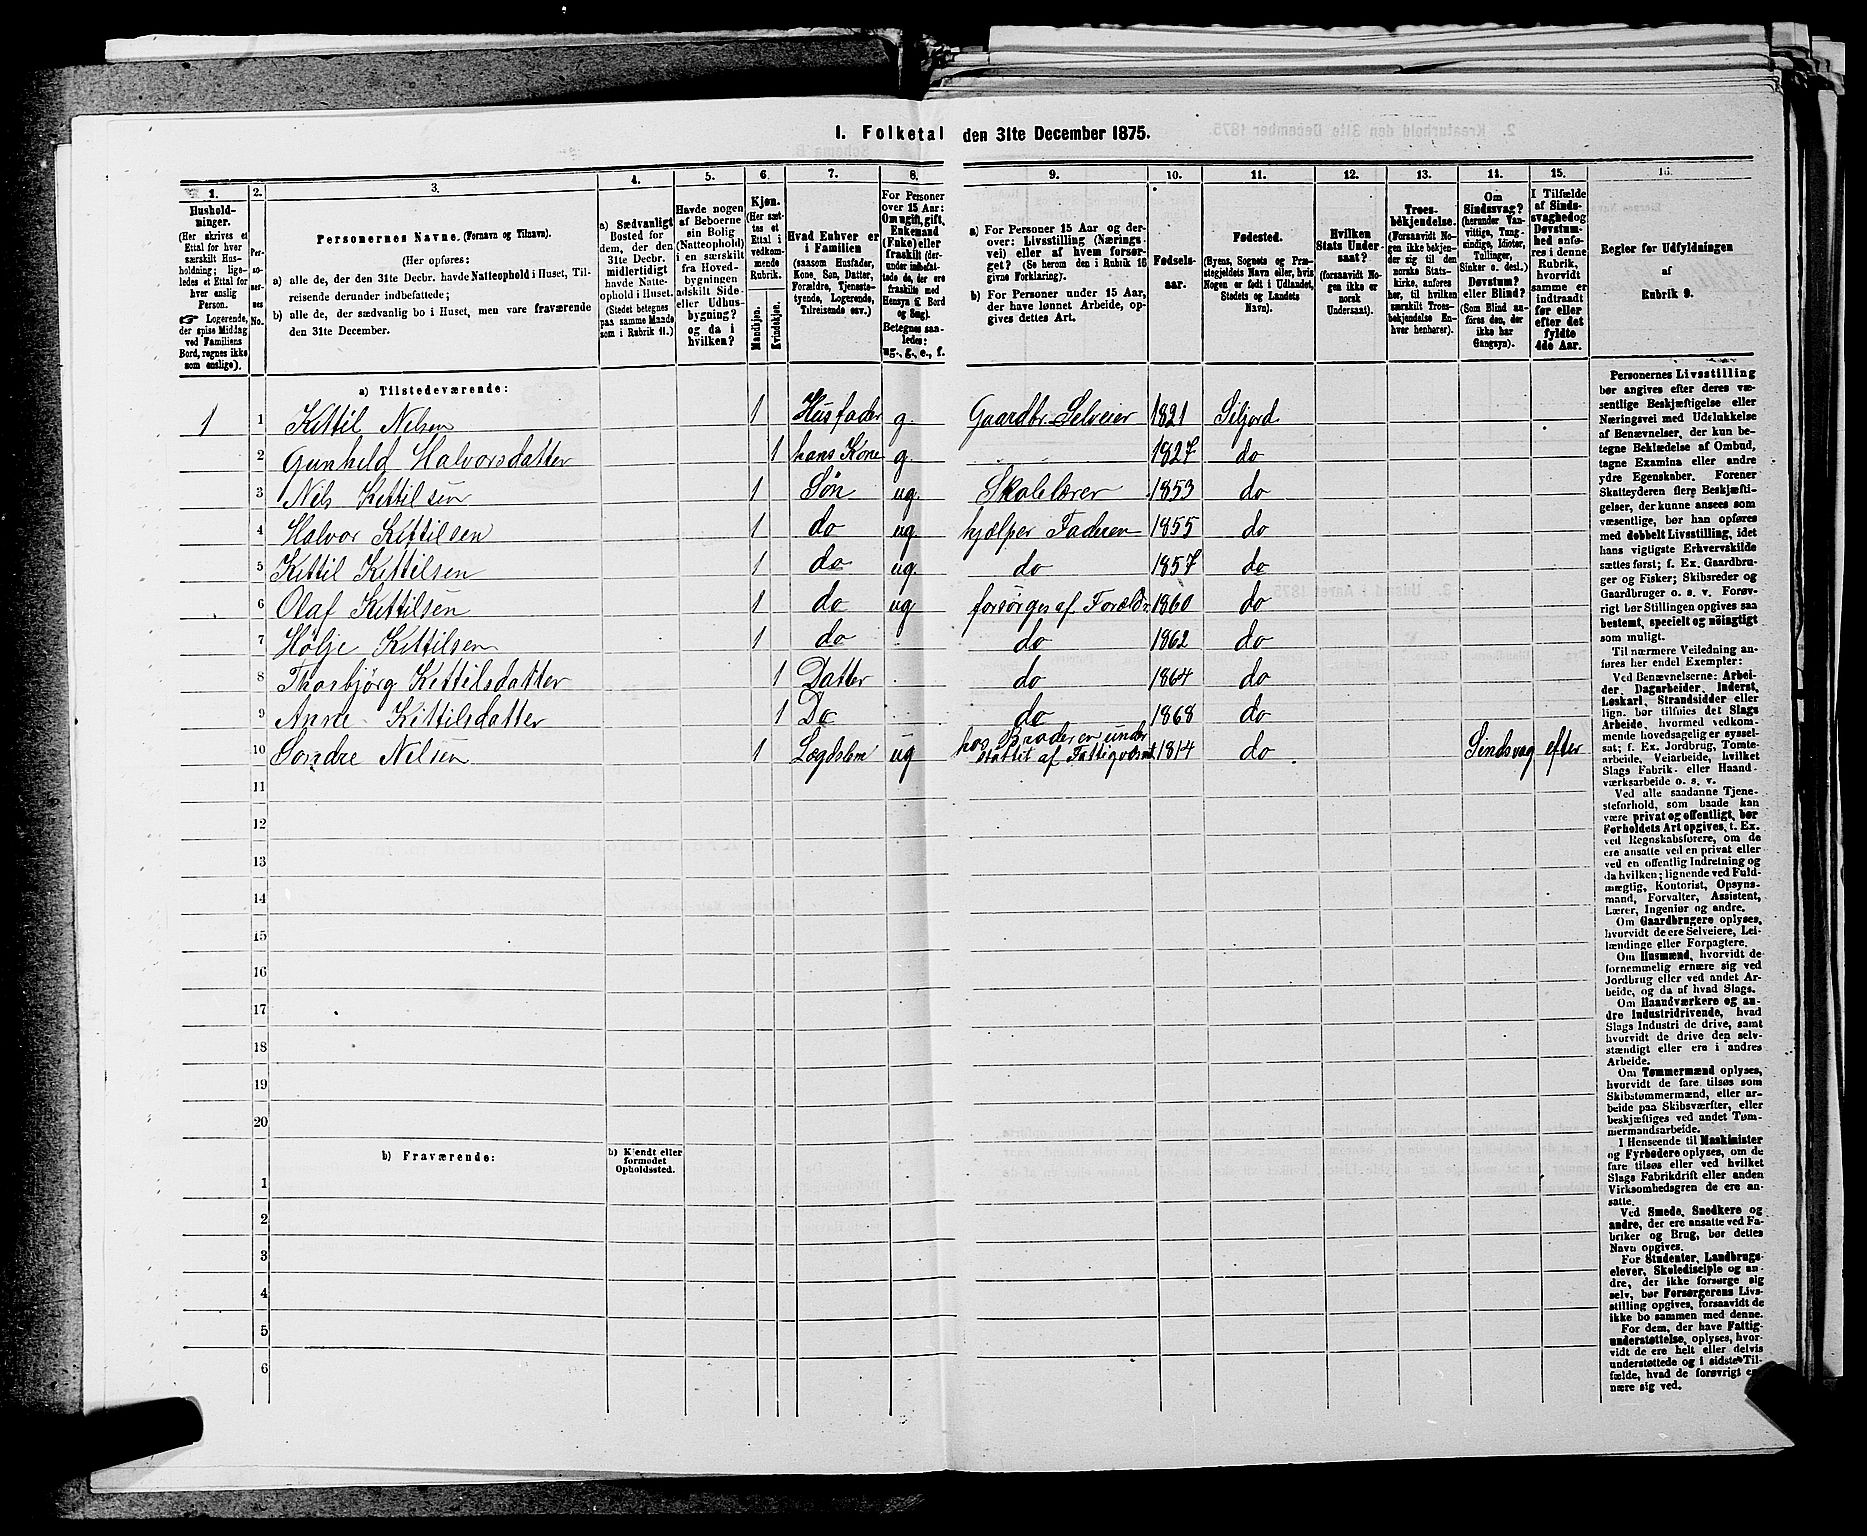 1. Folketal den 31te December 1875.
1. 2. 3. 4. 5. 6. 7. 8. 9. 10. 11. 12. 13. 14. 15. 16.
Husholdninger.
(Her skrives et
Ettal for hver
særskilt Husholdning;
ligeledes et Ettal for
hver enslig
Person.
☞ Logerende,
der spise Middag
ved Familiens
Bord, regnes ikke
som enslige).
Personernes No.
Personernes Navne. (Fornavn og Tilnavn).
(Her opføres:
a) alle de, der den 31te Decbr. havde Natteophold i Huset, Tilreisende derunder indbefattede;
b) alle de, der sædvanlig bo i Huset, men vare fraværende
den 31te December.
a) Sædvanligt
Bosted for
dem, der den
31te Decbr.
midlertidigt
havde Natteophold
i Huset.
(Stedet betegnes
paa samme Maade
som i Rubrik 11.)
Havde nogen
af Beboerne
sin Bolig
(Natteophold)
i en særskilt
fra Hovedbygningen
adskilt Side-
eller Udhusbygning?
og da i
hvilken?
Kjøn.
(Her sættes
et
Ettal i
vedkommende
Rubrik.
Mandkjøn.
Kvindekjøn.
Hvad Enhver er
i Familien
(saasom Husfader,
Kone, Søn, Datter,
Forældre, Tjenestetyende,
Logerende,
Tilreisende osv.)
For Personer
over 15 Aar:
Om ugift, gift,
Enkemand
(Enke) eller
fraskilt (derunder
indbefattede
de, der ere
fraskilte med
Hensyn til Bord
og Seng).
Betegnes saaledes:
ug., g., e., f.
a) For Personer 15 Aar og derover:
Livsstilling (Næringsvei)
eller af hvem forsørget?
(Se herom den i Rubrik 16
givne Forklaring).
b) For Personer under 15 Aar,
der have lønnet Arbeide, opgives
dettes Art.
Fødselsaar.
Fødested.
(Byens, Sognets og Præstegjeldets
Navn eller, hvis
Nogen er født i Udlandet,
Stedets og Landets
Navn).
Hvilken
Stats Undersaat?
(forsaavidt Nogen
ikke er
norsk
Undersaat).
Troesbekjendelse.
(Forsaavidt Nogen
ikke bekjender
sig til den
norske Statskirke,
anføres
her, til hvilken
særskilt Troesbekjendelse
Enhver henhører).
Om
Sindssvag?
(herunder Vanvittige,
Tungsindige,
Idioter,
Tullinger,
Sinker o. desl.)
Døvstum?
eller Blind?
(Som Blind anføres
den, der
ikke har
Gangsyn).
I Tilfælde
af Sindssvaghed
og
Døvstumhed
anføres
i denne
Rubrik,
hvorvidt
samme er
indtraadt
før eller
efter det
fyldte
4de Aar.
Regler for Udfyldningen
af
Rubrik 9.
a) Tilstedeværende:
1 1 Kittil Nilsen 1 Husfader g. Gaardbr. Selveier 1821 Siljord
2 Gunhild Halvorsdatter 1 hans Kone g. 1827 do
3 Nils Kittilsen 1 Søn ug. Skolelærer 1853 do
4 Halvor Kittilsen 1 do ug. hjælper Faderen 1855 do
5 Kittil Kittilsen 1 do ug. do 1857 do
6 Olaf Kittilsen 1 do ug forsørges af Forældr 1860 do
7 Hølje Kittilsen 1 do do 1862 do
8 Thorbjörg Kittilsdatter 1 Datter do 1864 do
9 Anne Kittilsdatter 1 Do do 1868 do
10 Sondre Nilsen 1 Lægdslem ug hos Broderen under
stöttet af Fattigvæsnt 1814 do Sindsvag efter
11
12
13
14
15
16
17
18
19
20
b) Fraværende:
b) Kjendt eller
formodet
Opholdssted.
1
2
3
4
5
6
Personernes Livsstilling
bør angives efter deres væsentlige
Beskjæftigelse eller
Næringsvei med Udelukkelse
af Benævnelser, der kun betegne
Beklædelse af Ombud,
tagne Examina eller andre
ydre Egenskaber. Forener
Skatteyderen flere Beskjæftigelser,
der kunne ansees som
væsentlige, bør han opføres
med dobbelt Livsstilling, idet
hans vigtigste Erhvervskilde
sættes først; f. Ex. Gaardbruger
og Fisker; Skibsreder og
Gaardbruger o. s. v. Forøvrigt
bør Stillingen opgives saa
bestemt, specielt og nöiagtigt
som muligt.
Til nærmere Veiledning anføres
her endel Exempler:
Ved Benævnelserne: Arbeider,
Dagarbeider, Inderst,
Løskarl, Strandsidder eller
lign. bør tilføies det Slags
Arbeide, hvormed vedkommende
hovedsagelig er sysselsat;
f. Ex. Jordbrug, Tomtearbeide,
Veiarbeide, hvilket
Slags Fabrik- eller Haandværksarbeide
o. s. v.
Ved alle saadanne Tjenesteforhold,
som baade kan
være privat og offentligt, bør
Forholdets Art opgives, t. Ex.
ved Regnskabsførere, om de
ere ansatte ved en privat eller
ved en offentlig Indretning og
da hvilken; lignende ved Fuldmægtig,
Kontorist, Opsynsmand,
Forvalter, Assistent,
Lærer, Ingeniør og andre.
Om Gaardbrugere oplyses,
hvorvidt de ere Selveiere, Leilændinge
eller Forpagtere.
Om Husmænd, hvorvidt de
fornemmelig ernære sig ved
Jordbrug eller ved andet Arbeide,
og da af hvad Slags.
Om Haandværkere og andre
Industridrivende, hvad
Slags Industri de drive, samt
hvorvidt de drive den selvstændigt
eller ere i andres
Arbeide.
Om Tømmermænd oplyses,
hvorvidt de fare tilsøs som
Skibstømmermænd, eller arbeide
paa Skibsværfter, eller
beskjæftiges ved andet Tømmermandsarbeide.
I Henseende til Maskinister
og Fyrbødere oplyses, om de
fare tilsøs eller ved hvilket
Slags Fabrikdrift eller anden
Virksomhedsgren de ere ansatte.
Ved Smede, Snedkere og
andre, der ere ansatte ved Fabriker
og Brug, bør dettes
Navn opgives.
For Studenter, Landbrugselever,
Skoledisciple og andre,
der ikke forsørge sig
selv, bør Forsørgerens Livsstilling
opgives, forsaavidt de
ikke bo sammen med denne.
For dem, der have Fattigunderstøttelse,
oplyses, hvorvidt
de ere helt eller delvis
understøttede og i sidste Tilfælde,
hvad de forøvrigt ernære
sig ved.